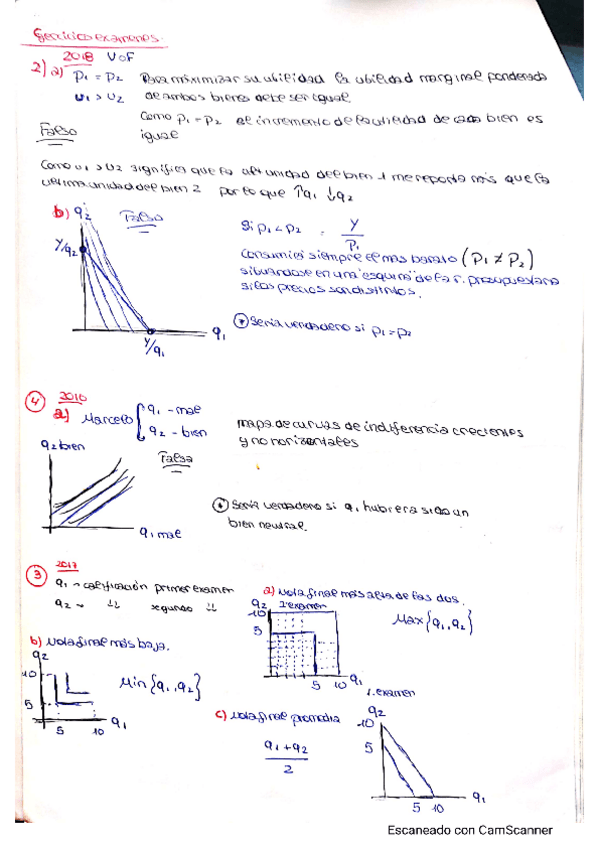 Ejercicios examenes.
2018 VoF
2) a) P1 = P2 Para maximizar su utilidad la utilidad marginal ponderada
u1 > u2 de ambos bienes debe ser igual.
Como P1 = P2 el incremento de la utilidad de cada bien es
Falso igual
Como u1 > u2 significa que la última unidad del bien 1 me reporta más que la
ultima unidad del bien 2 por lo que ↑q1 ↓q2
b) q2 Falso
Si P1 < P2 = Y/P1
Y/q2
Consumirá siempre el mas barato (P1 ≠ P2)
situandose en una "esquina" de la r. presupuestaria
si los precios son distintos.
q1
Y/q1
* Seria verdadero si P1 = P2
4 2016
a) Marcelo { q1 - mal
q2 - bien
mapa de curvas de indiferencia crecientes
y no horizontales
q2 bien
Falsa
* Seria verdadero si q1 hubiera sido un
bien neutral.
q1 mal
3 2017
q1 → calificación primer examen
q2 → " segundo "
a) Nota final más alta de las dos.
q2
10
5
Max {q1, q2}
5 10 q1
1. examen
b) Nota final más baja.
q2
10
5
Min {q1, q2}
5 10 q1
c) Nota final promedio
q1 + q2
2
q2
10
5
5 10 q1
Escaneado con CamScanner